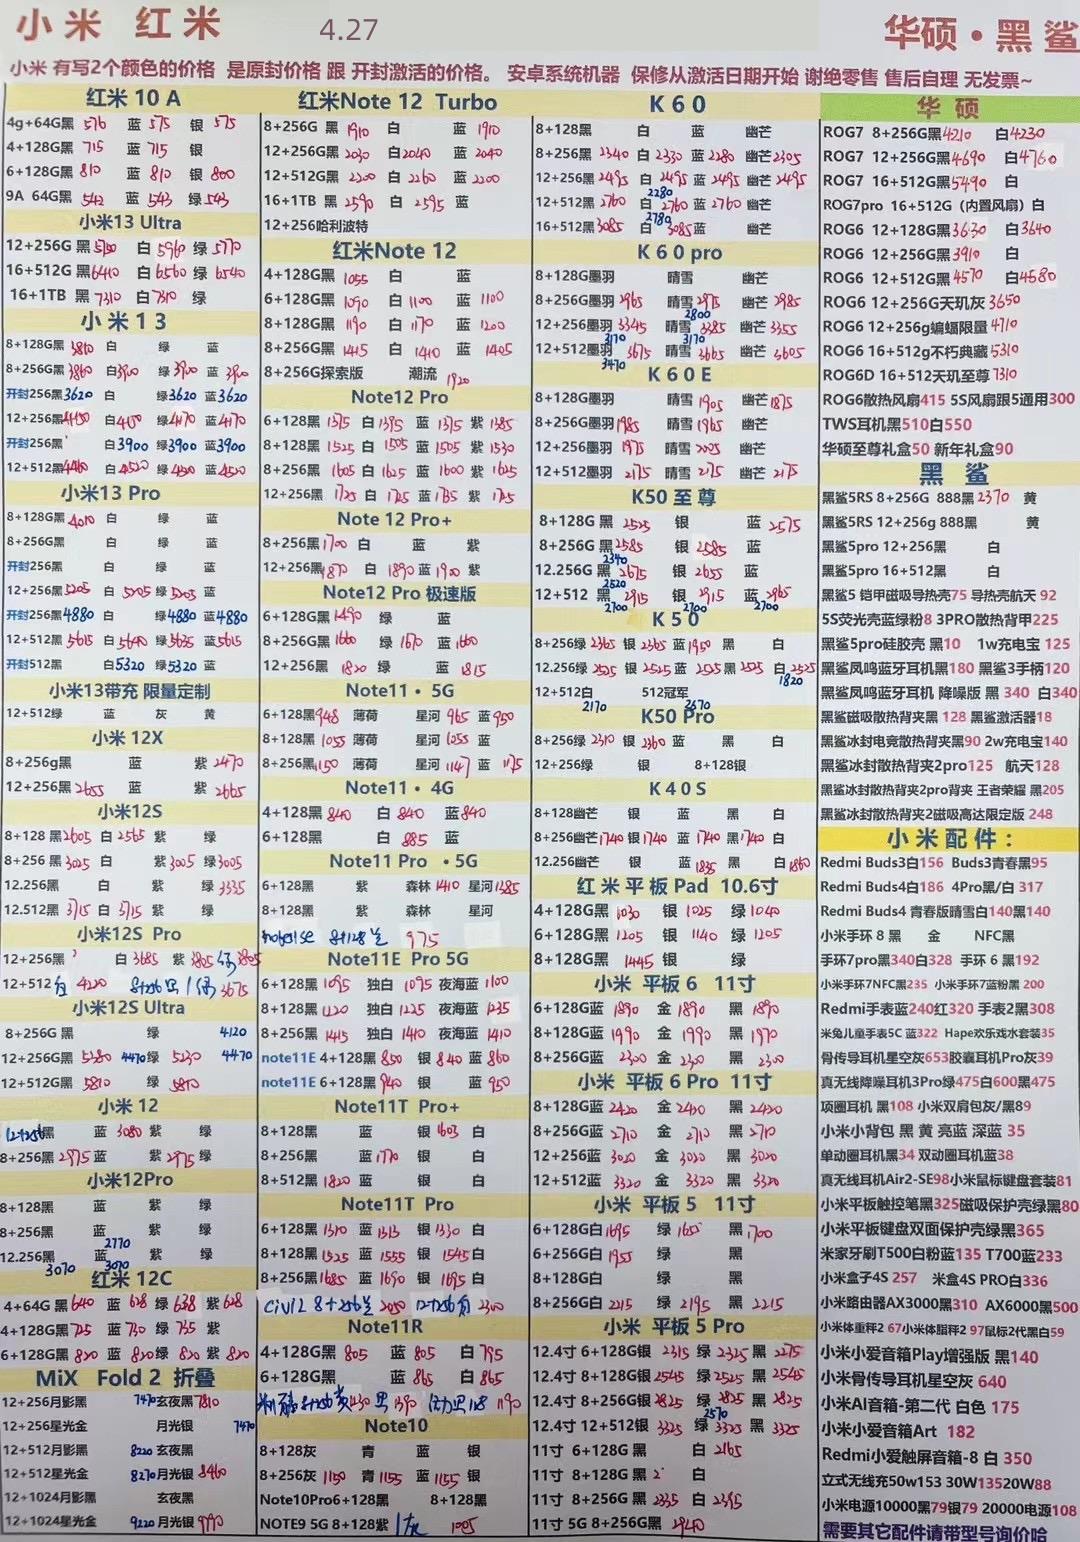 小米 红米 4.27 华硕·黑鲨
小米 有写2个颜色的价格 是原封价格 跟 开封激活的价格。 安卓系统机器 保修从激活日期开始 谢绝零售 售后自理 无发票~
红米 10 A
4g+64G黑 576 蓝 575 银 575
4+128G黑 715 蓝 715 银
6+128G黑 810 蓝 810 银 800
9A 64G黑 542 蓝 543 绿 543
小米13 Ultra
12+256G 黑 白 5960 绿 5770
16+512G 黑 6410 白 6560 绿 6540
16+1TB 黑 7310 白 7310 绿
小米13
8+128G黑 3810 白 绿 蓝
8+256G黑 3860 白 3900 绿 3900 蓝 3900
开封256黑 3620 白 绿 3620 蓝 3620
12+256黑 白 绿 4170 蓝 4170
开封256黑 白 3900 绿 3900 蓝 3900
12+512黑 4460 白 4520 绿 蓝 4520
小米13 Pro
8+128G黑 4010 白 绿 蓝
8+256G黑 白 绿 蓝
开封256黑 白 绿 蓝
12+256黑 5205 白 5205 绿 5205 蓝
开封256黑 4880 白 绿 4880 蓝 4880
12+512黑 5615 白 5640 绿 5635 蓝 5615
开封512黑 白 5320 绿 5320 蓝
小米13带充 限量定制
12+512绿 蓝 灰 黄
小米 12X
8+256g黑 蓝 紫 2470
12+256黑 2655 蓝 紫 2665
小米12S
8+128 黑 2605 白 2565 紫 绿
8+256 黑 3025 白 紫 3005 绿 3005
12.256黑 白 紫 绿 3335
12.512黑 3715 白 3715 紫 绿
小米12S Pro
12+256黑 白 3685 紫 3805 绿 3805
12+512 白 4220 8+256 黑 1绿 3675
小米12S Ultra
8+256G 黑 绿 4120
12+256G黑 5280 4470 绿 5230 4470
12+512G黑 5810 绿 5810
小米 12
12+256黑 蓝 3080 紫 绿
8+256黑 2975 蓝 紫 2975 绿
小米12Pro
8+128黑 蓝 紫 绿
8+256黑 蓝 紫 绿
2770
12.256黑 蓝 紫 绿
3070 3070
红米 12C
4+64G 黑 640 蓝 628 绿 638 紫 628
4+128G黑 725 蓝 730 绿 735 紫
6+128G黑 820 蓝 820 绿 820 紫 820
MiX Fold 2 折叠
12+256月影黑 7470 玄夜黑 7810
12+256星光金 月光银 7470
12+512月影黑 8220 玄夜黑
12+512星光金 8270 月光银 8460
12+1024月影黑 玄夜黑
12+1024星光金 9220 月光银 9790
红米Note 12 Turbo
8+256G 黑 1910 白 蓝 1910
12+256G黑 2030 白 2040 蓝 2040
12+512G黑 2200 白 2260 蓝 2200
16+1TB 黑 2590 白 2595 蓝
12+256哈利波特
红米Note 12
4+128G黑 1055 白 蓝
6+128G黑 1090 白 1100 蓝 1100
8+128G黑 1190 白 1170 蓝 1200
8+256G黑 1415 白 1410 蓝 1405
8+256G探索版 潮流 1920
Note12 Pro
6+128黑 1375 白 1395 蓝 1375 紫 1385
8+128黑 1525 白 1505 蓝 1505 紫 1530
8+256黑 1605 白 1625 蓝 1600 紫 1625
12+256黑 1725 白 1725 蓝 1735 紫 1725
Note 12 Pro+
8+256黑 1700 白 蓝 紫
12+256黑 1870 白 1890 蓝 1900 紫
Note12 Pro 极速版
6+128G黑 1490 绿 蓝
8+256G黑 1660 绿 1670 蓝 1660
12+256黑 1820 绿 蓝 1815
Note11·5G
6+128黑 948 薄荷 星河 965 蓝 950
8+128黑 1055 薄荷 星河 1055 蓝
8+256黑 1150 薄荷 星河 1147 蓝 1175
Note11·4G
4+128黑 840 白 840 蓝 840
6+128黑 白 885 蓝
Note11 Pro ·5G
6+128黑 紫 森林 1410 星河 1385
8+128黑 紫 森林 星河
8+128 975
Note11E Pro 5G
6+128黑 1095 独白 1075 夜海蓝 1100
8+128黑 1220 独白 1225 夜海蓝 1235
8+256黑 1415 独白 1410 夜海蓝 1410
note11E 4+128黑 850 银 840 蓝 860
note11E 6+128黑 940 银 蓝 950
Note11T Pro+
8+128黑 蓝 银 1603 白
8+256黑 蓝 1770 银 白
8+512黑 1820 蓝 银 白
Note11T Pro
6+128黑 1310 蓝 1313 银 1330 白
8+128黑 1525 蓝 1555 银 1545 白
8+256黑 1685 蓝 1690 银 1695 白
Civi2 8+256 2050 12+256 2300
Note11R
4+128G黑 805 蓝 805 白 795
6+128G黑 蓝 865 白 865
8+256 1390 128 1190
Note10
8+128灰 青 蓝 银
8+256灰 1150 青 1155 蓝 1155 银
Note10Pro6+128黑 8+128黑
NOTE9 5G 8+128紫 1灰 1005
K60
8+128黑 白 蓝 幽芒
8+256黑 2340 白 2330 蓝 2280 幽芒 2305
12+256黑 2495 白 2495 蓝 2495 幽芒 2495
2280
12+512黑 2760 白 2760 蓝 2760 幽芒
2780
16+512黑 3085 白 3085 蓝 幽芒
K60 pro
8+128G墨羽 晴雪 幽芒
8+256G墨羽 2965 晴雪 2975 幽芒 2985
2800
12+256墨羽 3345 晴雪 3385 幽芒 3355
3170 3170
12+512墨羽 3675 晴雪 3665 幽芒 3605
3470
K60E
8+128G墨羽 晴雪 1905 幽芒 1875
8+256G墨羽 1985 晴雪 1965 幽芒
12+256墨羽 1975 晴雪 2005 幽芒
12+512墨羽 2175 晴雪 2175 幽芒 2175
K50 至尊
8+128G 黑 2525 银 蓝 2575
8+256G 黑 2585 银 2585 蓝
2340
12.256G 黑 2675 银 2655 蓝
2520
12+512 黑 2915 银 2915 蓝 2965
2700 2700 2700
K50
8+256绿 2365 银 2365 蓝 1950 黑 白
12.256绿 2525 银 2525 蓝 2525 黑 2525 白 2525
1820
12+512白 512冠军
2170 2670
K50 Pro
8+256绿 2310 银 2360 蓝 黑 白
12+256绿 银 8+128银
K40S
8+128幽芒 银 蓝 黑 白
8+256幽芒 1740 银 1740 蓝 1740 黑 1740 白
12.256幽芒 银 蓝 1835 黑 白 1860
红米平板Pad 10.6寸
4+128G黑 1030 银 1025 绿 1040
6+128G黑 1205 银 1140 绿 1205
8+128G黑 1445 银 绿
小米 平板6 11寸
6+128G蓝 1890 金 1890 黑 1890
8+128G蓝 1990 金 1990 黑 1970
8+256G蓝 2300 金 2300 黑 2300
小米 平板6 Pro 11寸
8+128G蓝 2420 金 2420 黑 2420
8+256G蓝 2710 金 2710 黑 2710
12+256蓝 3020 金 3020 黑 3020
12+512蓝 3320 金 3320 黑 3320
小米 平板5 11寸
6+128G白 1695 绿 1650 黑 1700
6+256G白 1955 绿 黑
8+128G白 绿 黑
8+256G白 2215 绿 2195 黑 2215
小米 平板5 Pro
12.4寸 6+128G银 2315 绿 2325 黑 2275
12.4寸 8+128G银 2545 绿 2525 黑 2545
12.4寸 8+256G银 2825 绿 2825 黑 2825
2570
12.4寸 12+512银 3325 绿 3325 黑 3325
11寸 6+128G 黑 白 2165
11寸 8+128G 黑 白
11寸 8+256G 黑 2335 白 2395
11寸 5G 8+256G黑 2940
华硕
ROG7 8+256G黑4210 白4230
ROG7 12+256G黑4690 白4760
ROG7 16+512G黑5490 白
ROG7pro 16+512G（内置风扇）白
ROG6 12+128G黑3630 白3640
ROG6 12+256G黑3910 白
ROG6 12+512G黑4570 白4680
ROG6 12+256G天玑灰 3650
ROG6 12+256g蝙蝠限量4710
ROG6 16+512g不朽典藏5310
ROG6D 16+512天玑至尊7310
ROG6散热风扇415 5S风扇跟5通用300
TWS耳机黑510白550
华硕至尊礼盒50 新年礼盒90
黑鲨
黑鲨5RS 8+256G 888黑 2370 黄
黑鲨5RS 12+256g 888黑 黄
黑鲨5pro 12+256黑 白
黑鲨5pro 16+512黑 白
黑鲨5 铠甲磁吸导热壳75 导热壳航天 92
5S荧光壳蓝绿粉8 3PRO散热背甲225
黑鲨5pro硅胶壳 黑10 1w充电宝 125
黑鲨凤鸣蓝牙耳机黑180 黑鲨3手柄120
黑鲨凤鸣蓝牙耳机 降噪版 黑 340 白340
黑鲨磁吸散热背夹黑 128 黑鲨激活器18
黑鲨冰封电竞散热背夹黑90 2w充电宝140
黑鲨冰封散热背夹2pro125 航天128
黑鲨冰封散热背夹2pro背夹 王者荣耀 黑205
黑鲨冰封散热背夹2磁吸高达限定版 248
小米配件：
Redmi Buds3白156 Buds3青春黑95
Redmi Buds4白186 4Pro黑/白 317
Redmi Buds4 青春版晴雪白140黑140
小米手环 8 黑 金 NFC黑
手环7pro黑340白328 手环 6 黑192
小米手环7NFC黑235 小米手环7蓝粉黑 200
Redmi手表蓝240红320 手表2黑308
米兔儿童手表5C 蓝322 Hape欢乐戏水套装35
骨传导耳机星空灰653胶囊耳机Pro灰39
真无线降噪耳机3Pro绿475白600黑475
项圈耳机 黑108 小米双肩包灰/黑89
小米小背包 黑 黄 亮蓝 深蓝 35
单动圈耳机黑34 双动圈耳机蓝38
真无线耳机Air2-SE98小米鼠标键盘套装81
小米平板触控笔黑325磁吸保护壳绿黑80
小米平板键盘双面保护壳绿黑365
米家牙刷T500白粉蓝135 T700蓝233
小米盒子4S 257 米盒4S PRO白336
小米路由器AX3000黑310 AX6000黑500
小米体重秤2 67小米体脂秤2 97鼠标2代黑白59
小米小爱音箱Play增强版 黑140
小米骨传导耳机星空灰 640
小米AI音箱-第二代 白色 175
小米小爱音箱Art 182
Redmi小爱触屏音箱-8 白 350
立式无线充50w153 30W13520W88
小米电源10000黑79银79 20000电源108
需要其它配件请带型号询价哈